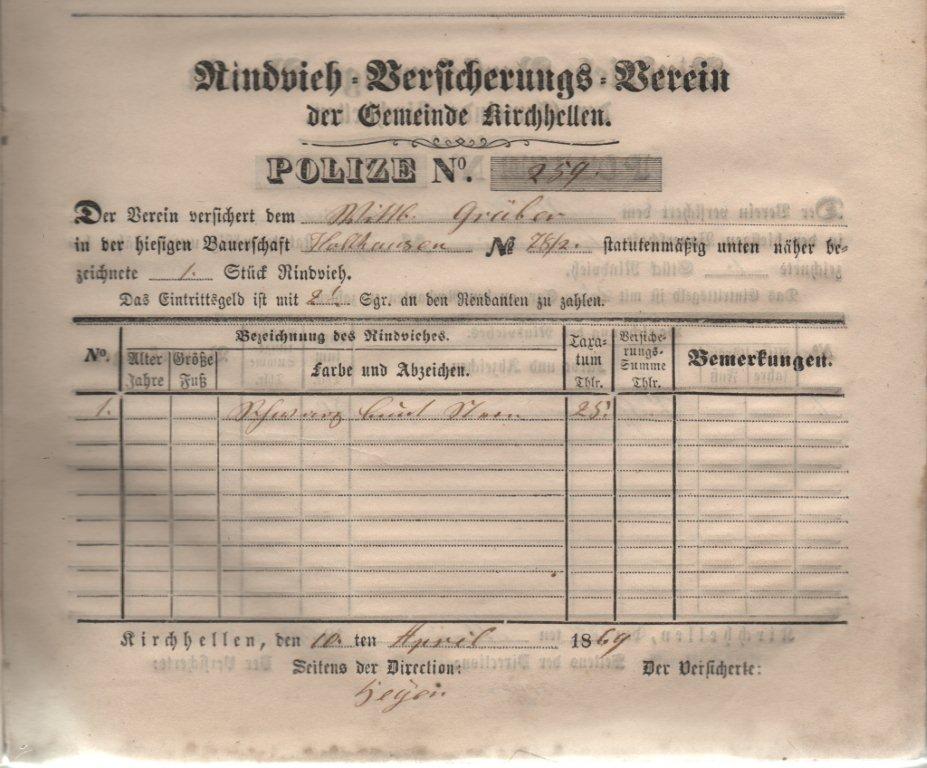 Rindvieh-Versicherungs-Verein
der Gemeinde Kirchhellen.
POLIZE No. 259.
Der Verein versichert dem Wittb. Gräber
in der hiesigen Bauerschaft Holthausen № 78/2. statutenmäßig unten näher be-
zeichnete 1. Stück Rindvieh.
Das Eintrittsgeld ist mit 2 Sgr. an den Rendanten zu zahlen.
No. Bezeichnung des Rindviehes. Taxatum Thlr. Versicherungs-Summe Thlr. Bemerkungen.
Alter Jahre Größe Fuß Farbe und Abzeichen.
1. Schwarz bunt Stern 25
Kirchhellen, den 10. ten April 1869
Seitens der Direction: Der Versicherte: